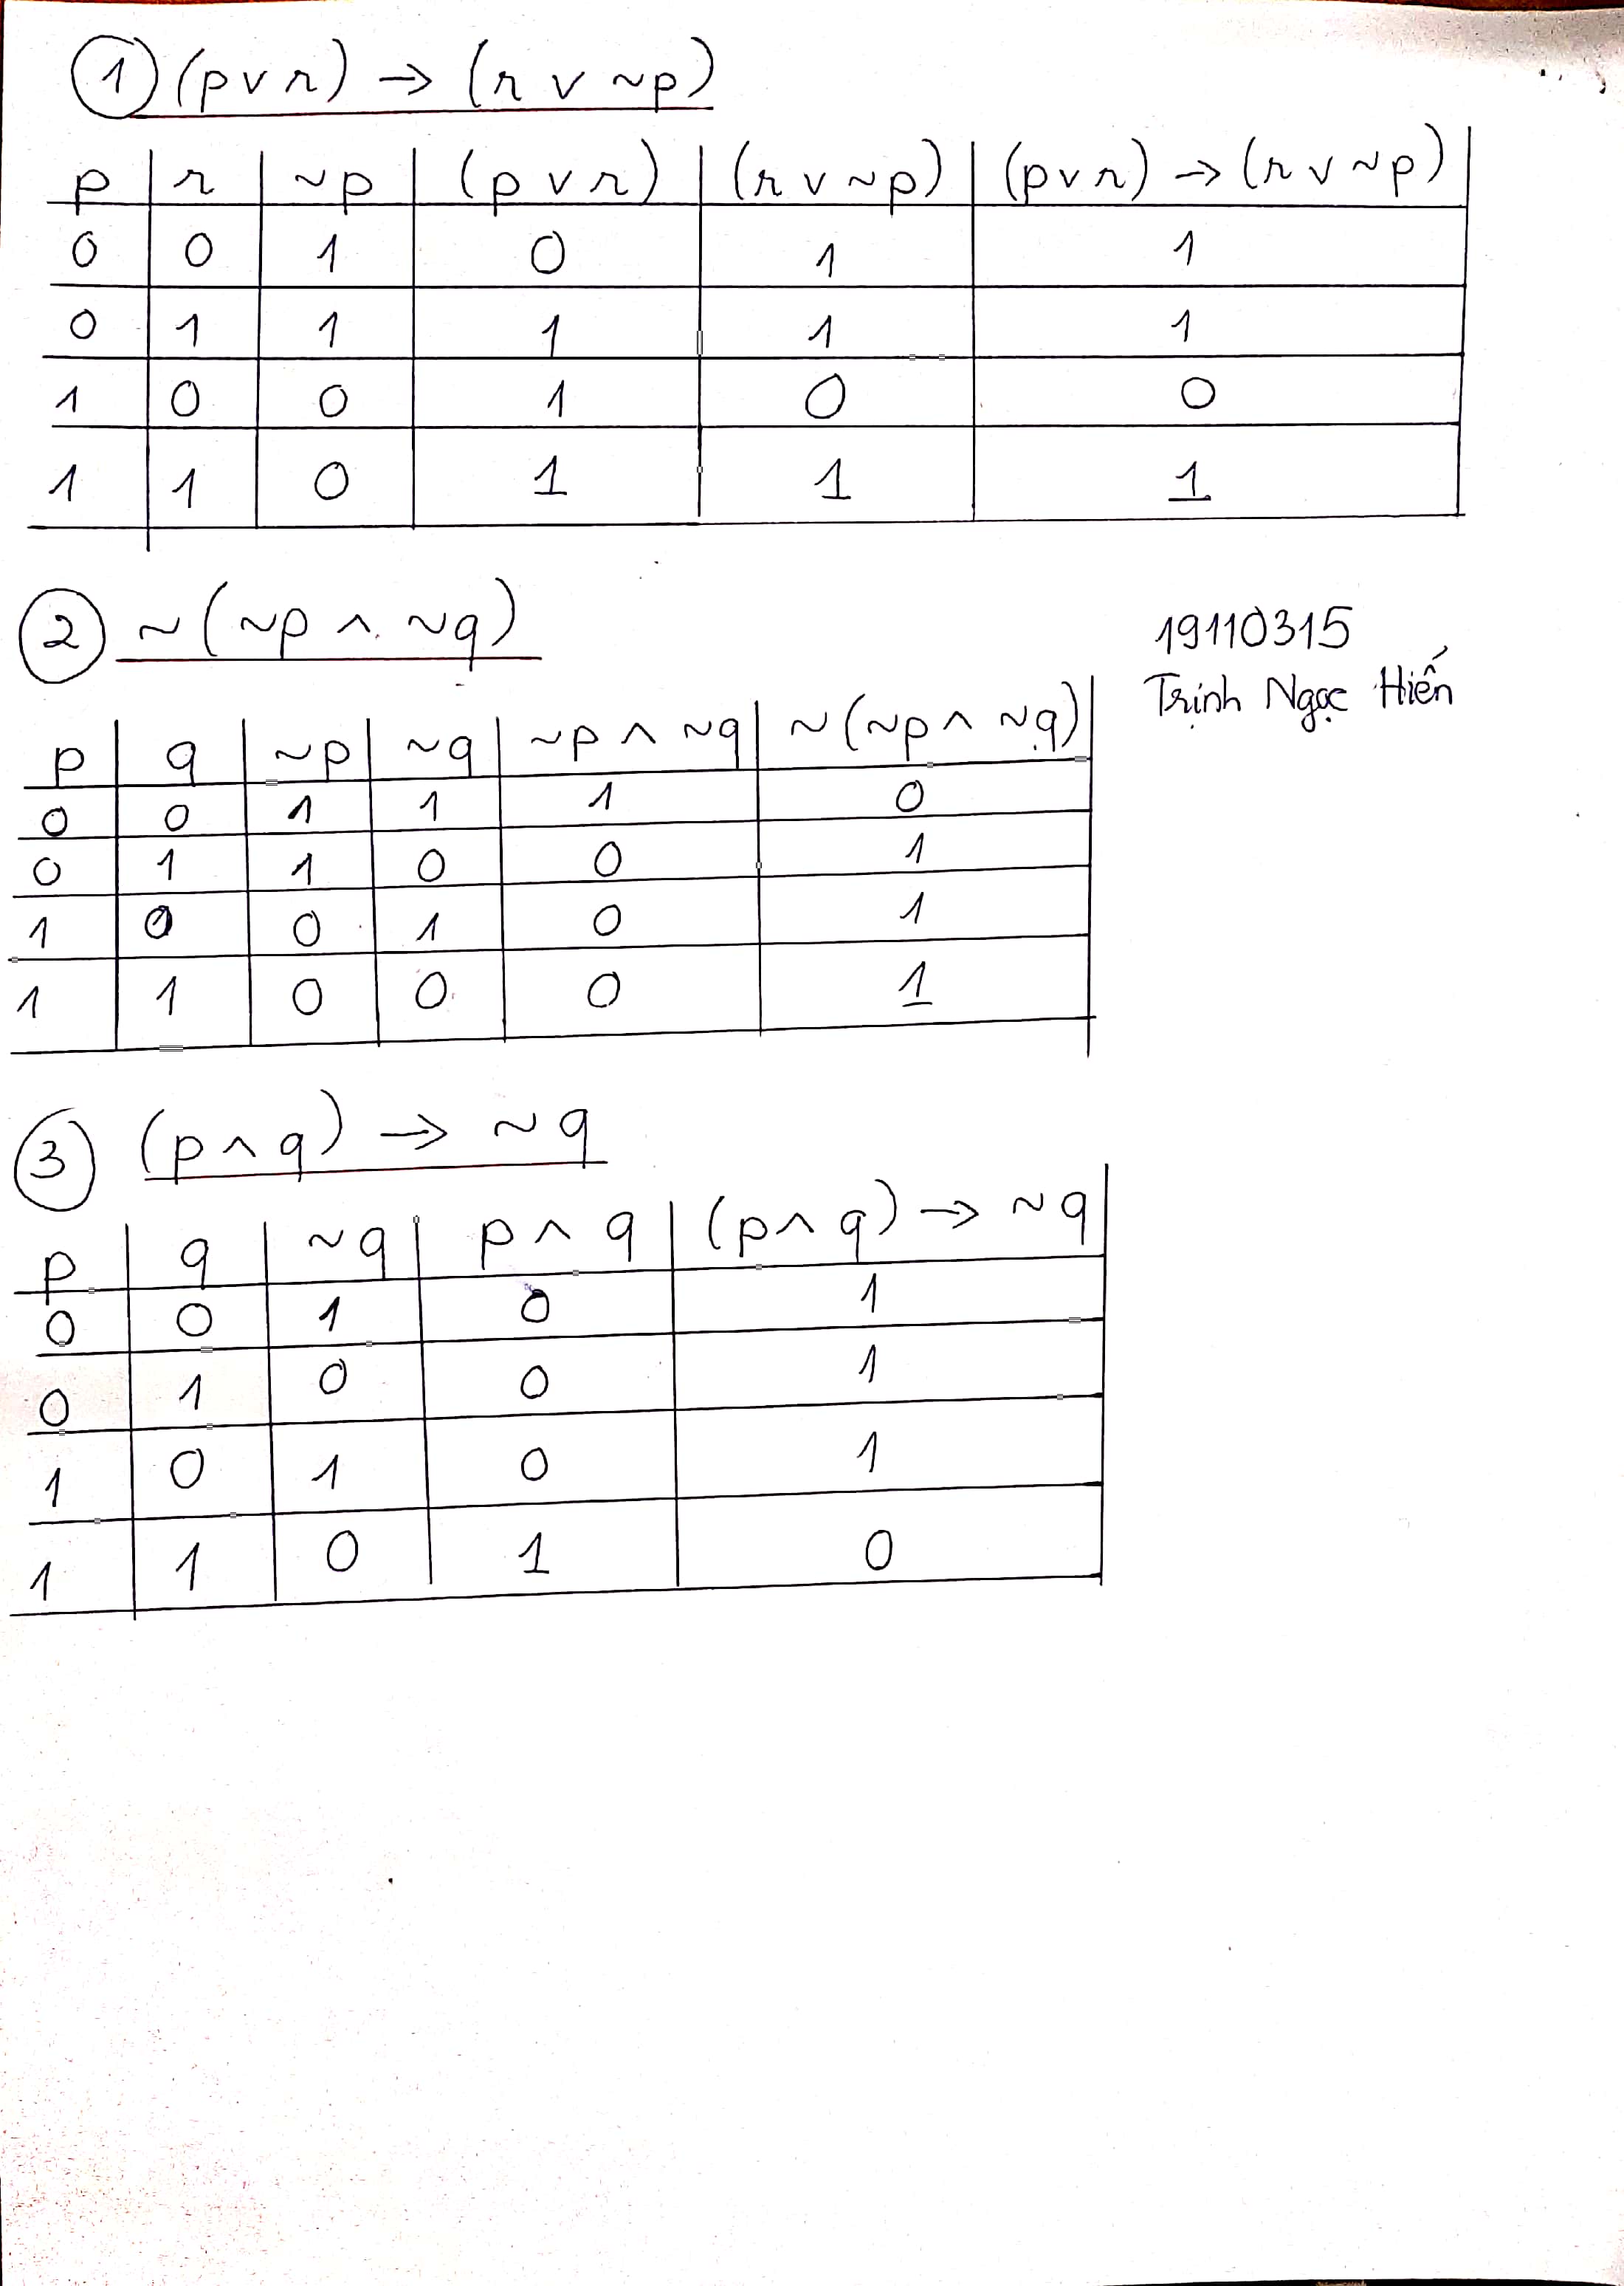 ① (p ∨ r) → (r ∨ ~p)
p | r | ~p | (p ∨ r) | (r ∨ ~p) | (p ∨ r) → (r ∨ ~p)
0 | 0 | 1 | 0 | 1 | 1
0 | 1 | 1 | 1 | 1 | 1
1 | 0 | 0 | 1 | 0 | 0
1 | 1 | 0 | 1 | 1 | 1
② ~(~p ∧ ~q)
19110315
Trịnh Ngọc Hiến
p | q | ~p | ~q | ~p ∧ ~q | ~(~p ∧ ~q)
0 | 0 | 1 | 1 | 1 | 0
0 | 1 | 1 | 0 | 0 | 1
1 | 0 | 0 | 1 | 0 | 1
1 | 1 | 0 | 0 | 0 | 1
③ (p ∧ q) → ~q
p | q | ~q | p ∧ q | (p ∧ q) → ~q
0 | 0 | 1 | 0 | 1
0 | 1 | 0 | 0 | 1
1 | 0 | 1 | 0 | 1
1 | 1 | 0 | 1 | 0